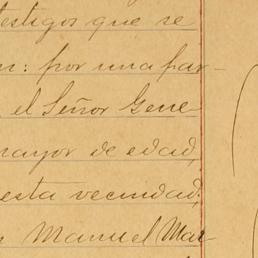 testigos que se
n: por una par-
el Señor Gene
mayor de edad,
esta vecindad;
n Manuel Mar